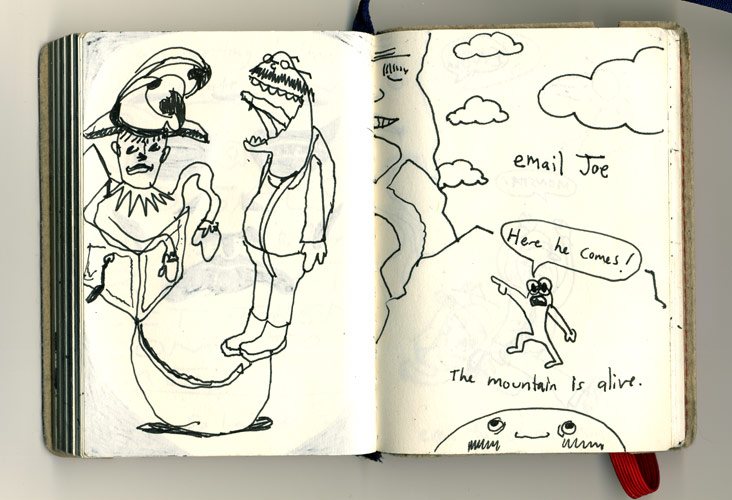 email Joe
Here he comes!
The mountain is alive.